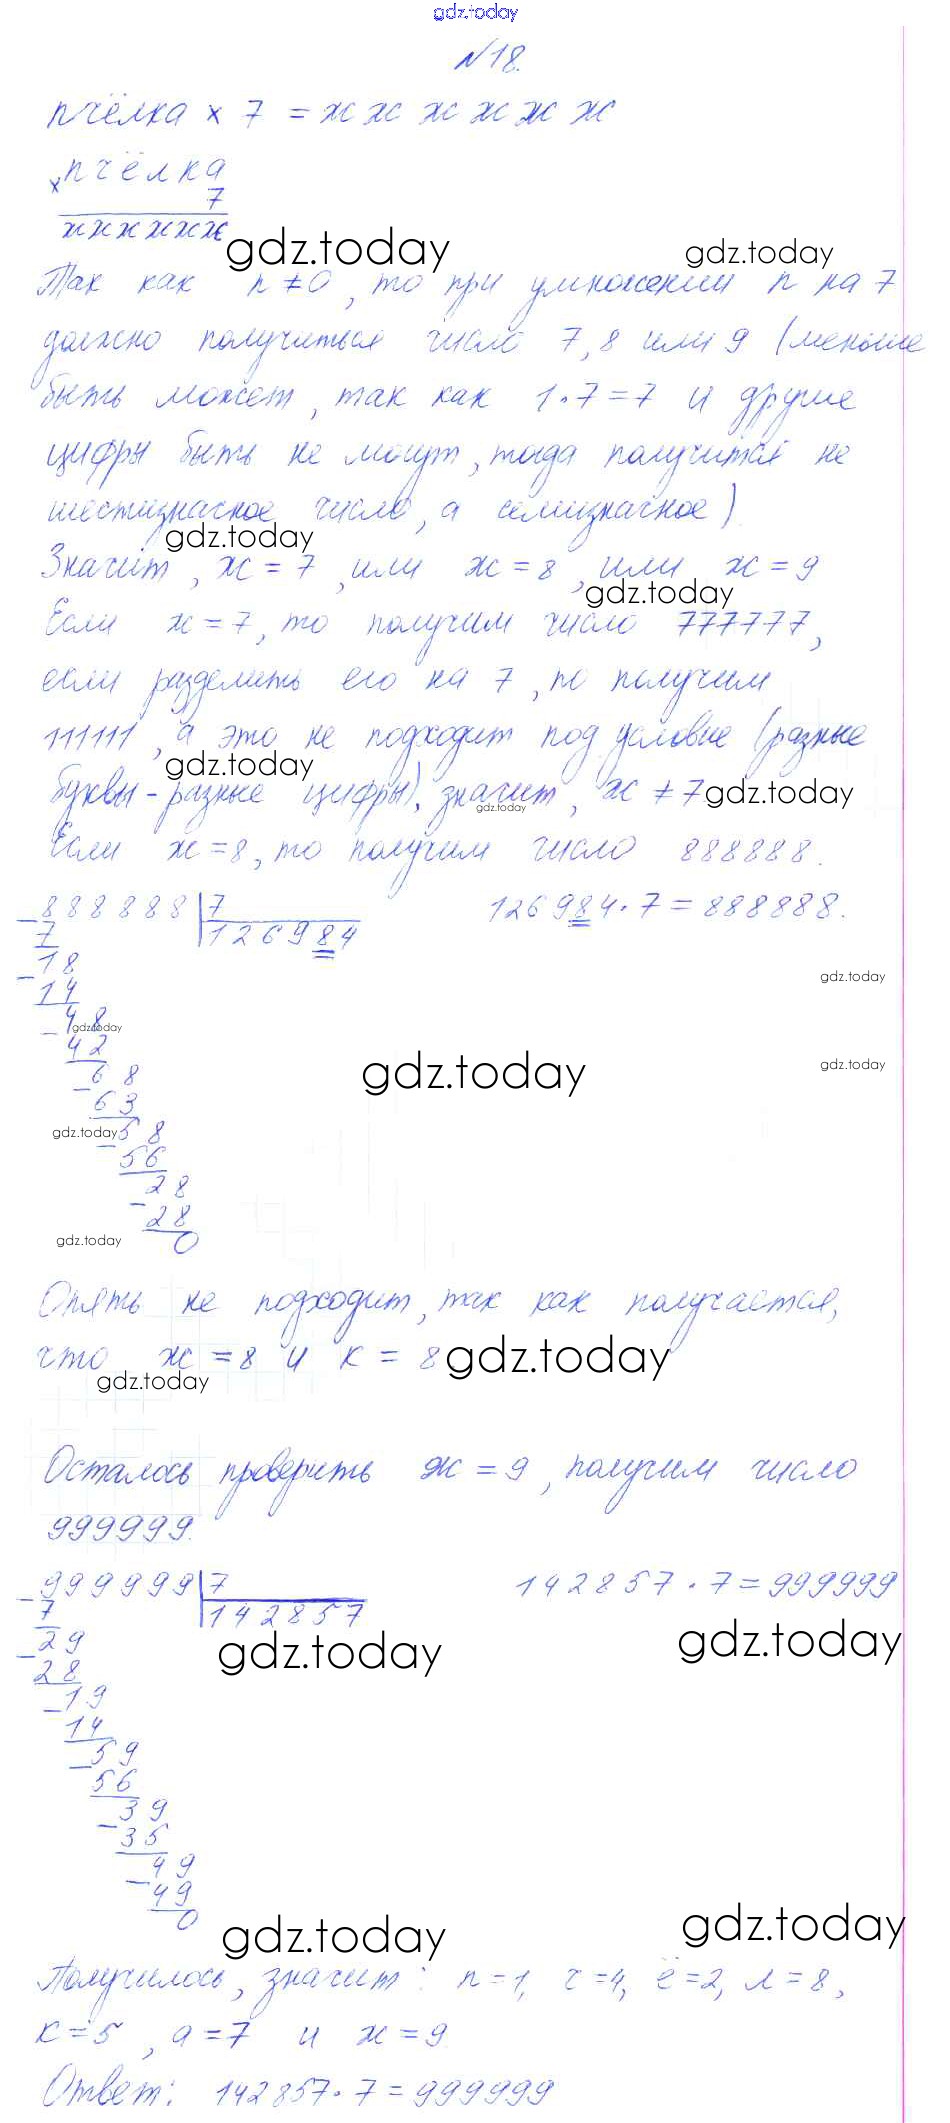 gdz.today
№18.
пчёлка × 7 = ж ж ж ж ж ж
× пчёлка
7
жжжжжж
gdz.today
gdz.today
Так как п ≠ 0, то при умножении п на 7
должно получиться число 7, 8 или 9 (меньше
быть может, так как 1·7=7 и другие
цифры быть не могут, тогда получится не
шестизначное число, а семизначное)
gdz.today
Значит, ж = 7, или ж = 8, или ж = 9
gdz.today
Если ж = 7, то получим число 777777,
если разделить его на 7, то получим
111111, а это не подходит под условие (разные
gdz.today
буквы - разные цифры), значит, ж ≠ 7
gdz.today
gdz.today
Если ж = 8, то получим число 888888.
- 888888 | 7
126984·7=888888.
7
126984
- 18
gdz.today
14
- 48
gdz.today
42
- 68
gdz.today
gdz.today
63
- 58
gdz.today
56
- 28
28
0
gdz.today
Опять не подходит, так как получается,
что ж = 8 и к = 8
gdz.today
gdz.today
Осталось проверить ж = 9, получим число
999999.
- 999999 | 7
142857·7=999999
7
142857
- 29
gdz.today
gdz.today
28
- 19
14
- 59
56
- 39
35
- 49
49
0
gdz.today
gdz.today
Получилось, значит: п=1, ч=4, ё=2, л=8,
к=5, а=7 и ж=9
Ответ: 142857·7=999999